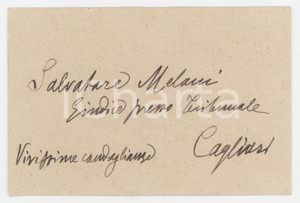 Salvatore Melani
Giudice presso Tribunale
Cagliari
Vivissime condoglianze